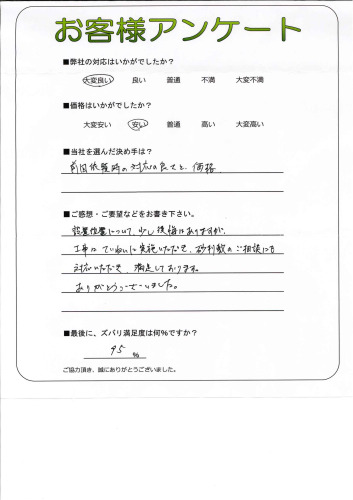 お客様アンケート
■弊社の対応はいかがでしたか?
大変良い 良い 普通 不満 大変不満
■価格はいかがでしたか?
大変安い 安い 普通 高い 大変高い
■当社を選んだ決め手は?
前回依頼時の対応の良さと、価格
■ご感想・ご要望などをお書き下さい。
設置位置について、少し後悔はありますが、
工事はていねいに実施いただき、砂利敷のご相談にも
対応いただき、満足しております。
ありがとうございました。
■最後に、ズバリ満足度は何%ですか?
95 %
ご協力頂き、誠にありがとうございました。